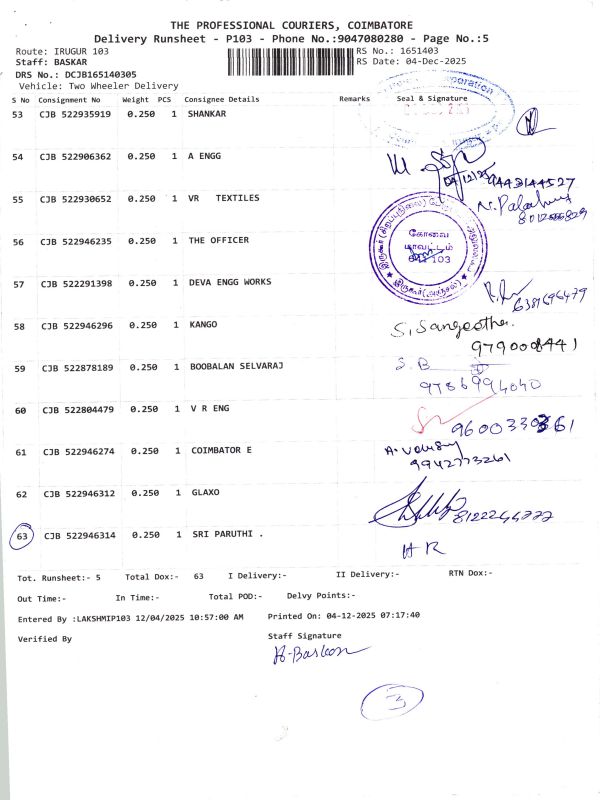 THE PROFESSIONAL COURIERS, COIMBATORE
Delivery Runsheet - P103 - Phone No.:9047080280 - Page No.:5
Route: IRUGUR 103
RS No.: 1651403
Staff: BASKAR
RS Date: 04-Dec-2025
DRS No.: DCJB165140305
Vehicle: Two Wheeler Delivery
S No Consignment No Weight PCS Consignee Details Remarks Seal & Signature
53 CJB 522935919 0.250 1 SHANKAR
54 CJB 522906362 0.250 1 A ENGG
9443144527
55 CJB 522930652 0.250 1 VR TEXTILES
56 CJB 522946235 0.250 1 THE OFFICER
கோவை
மாவட்டம்
641 103
57 CJB 522291398 0.250 1 DEVA ENGG WORKS
6381696479
58 CJB 522946296 0.250 1 KANGO
S. Sangeetha.
9790008441
59 CJB 522878189 0.250 1 BOOBALAN SELVARAJ
S. B
9786994040
60 CJB 522804479 0.250 1 V R ENG
9600330361
61 CJB 522946274 0.250 1 COIMBATOR E
9942773261
62 CJB 522946312 0.250 1 GLAXO
8122244772
63 CJB 522946314 0.250 1 SRI PARUTHI .
H R
Tot. Runsheet:- 5 Total Dox:- 63 I Delivery:- II Delivery:- RTN Dox:-
Out Time:- In Time:- Total POD:- Delvy Points:-
Entered By :LAKSHMIP103 12/04/2025 10:57:00 AM Printed On: 04-12-2025 07:17:40
Verified By Staff Signature
A-Baskar
3